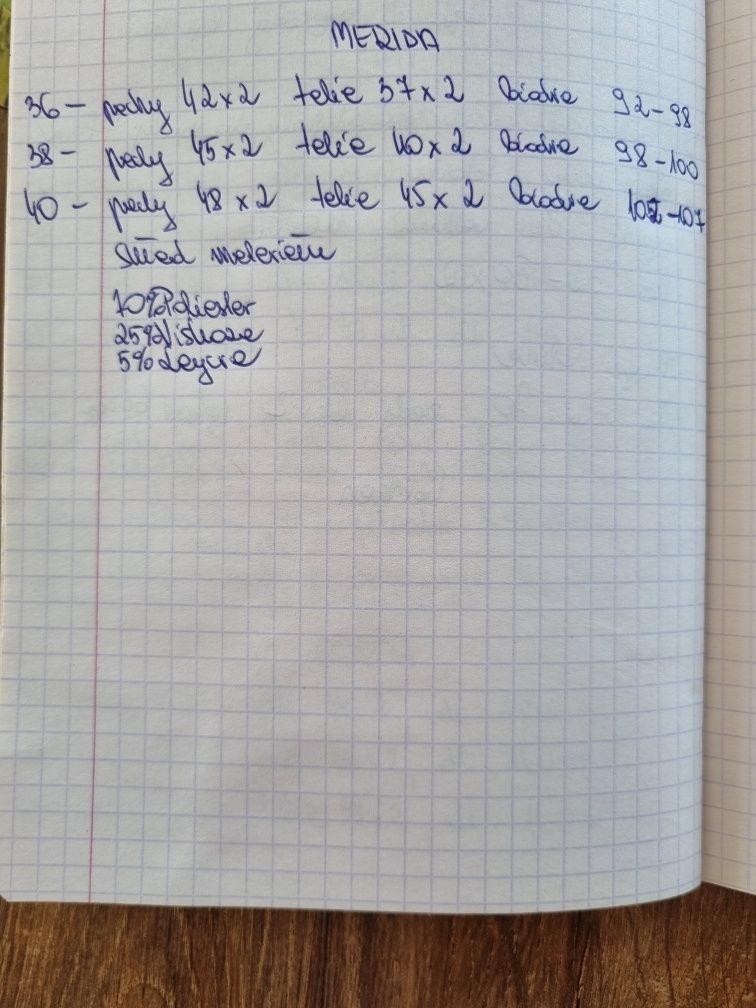 MERIDA
36 - pachy 42x2 talia 37x2 biodra 92-98
38 - pachy 45x2 talia 40x2 biodra 98-100
40 - pachy 48x2 talia 45x2 biodra 102-107
Skład materiału
70% Poliester
25% Viskoza
5% Laycra